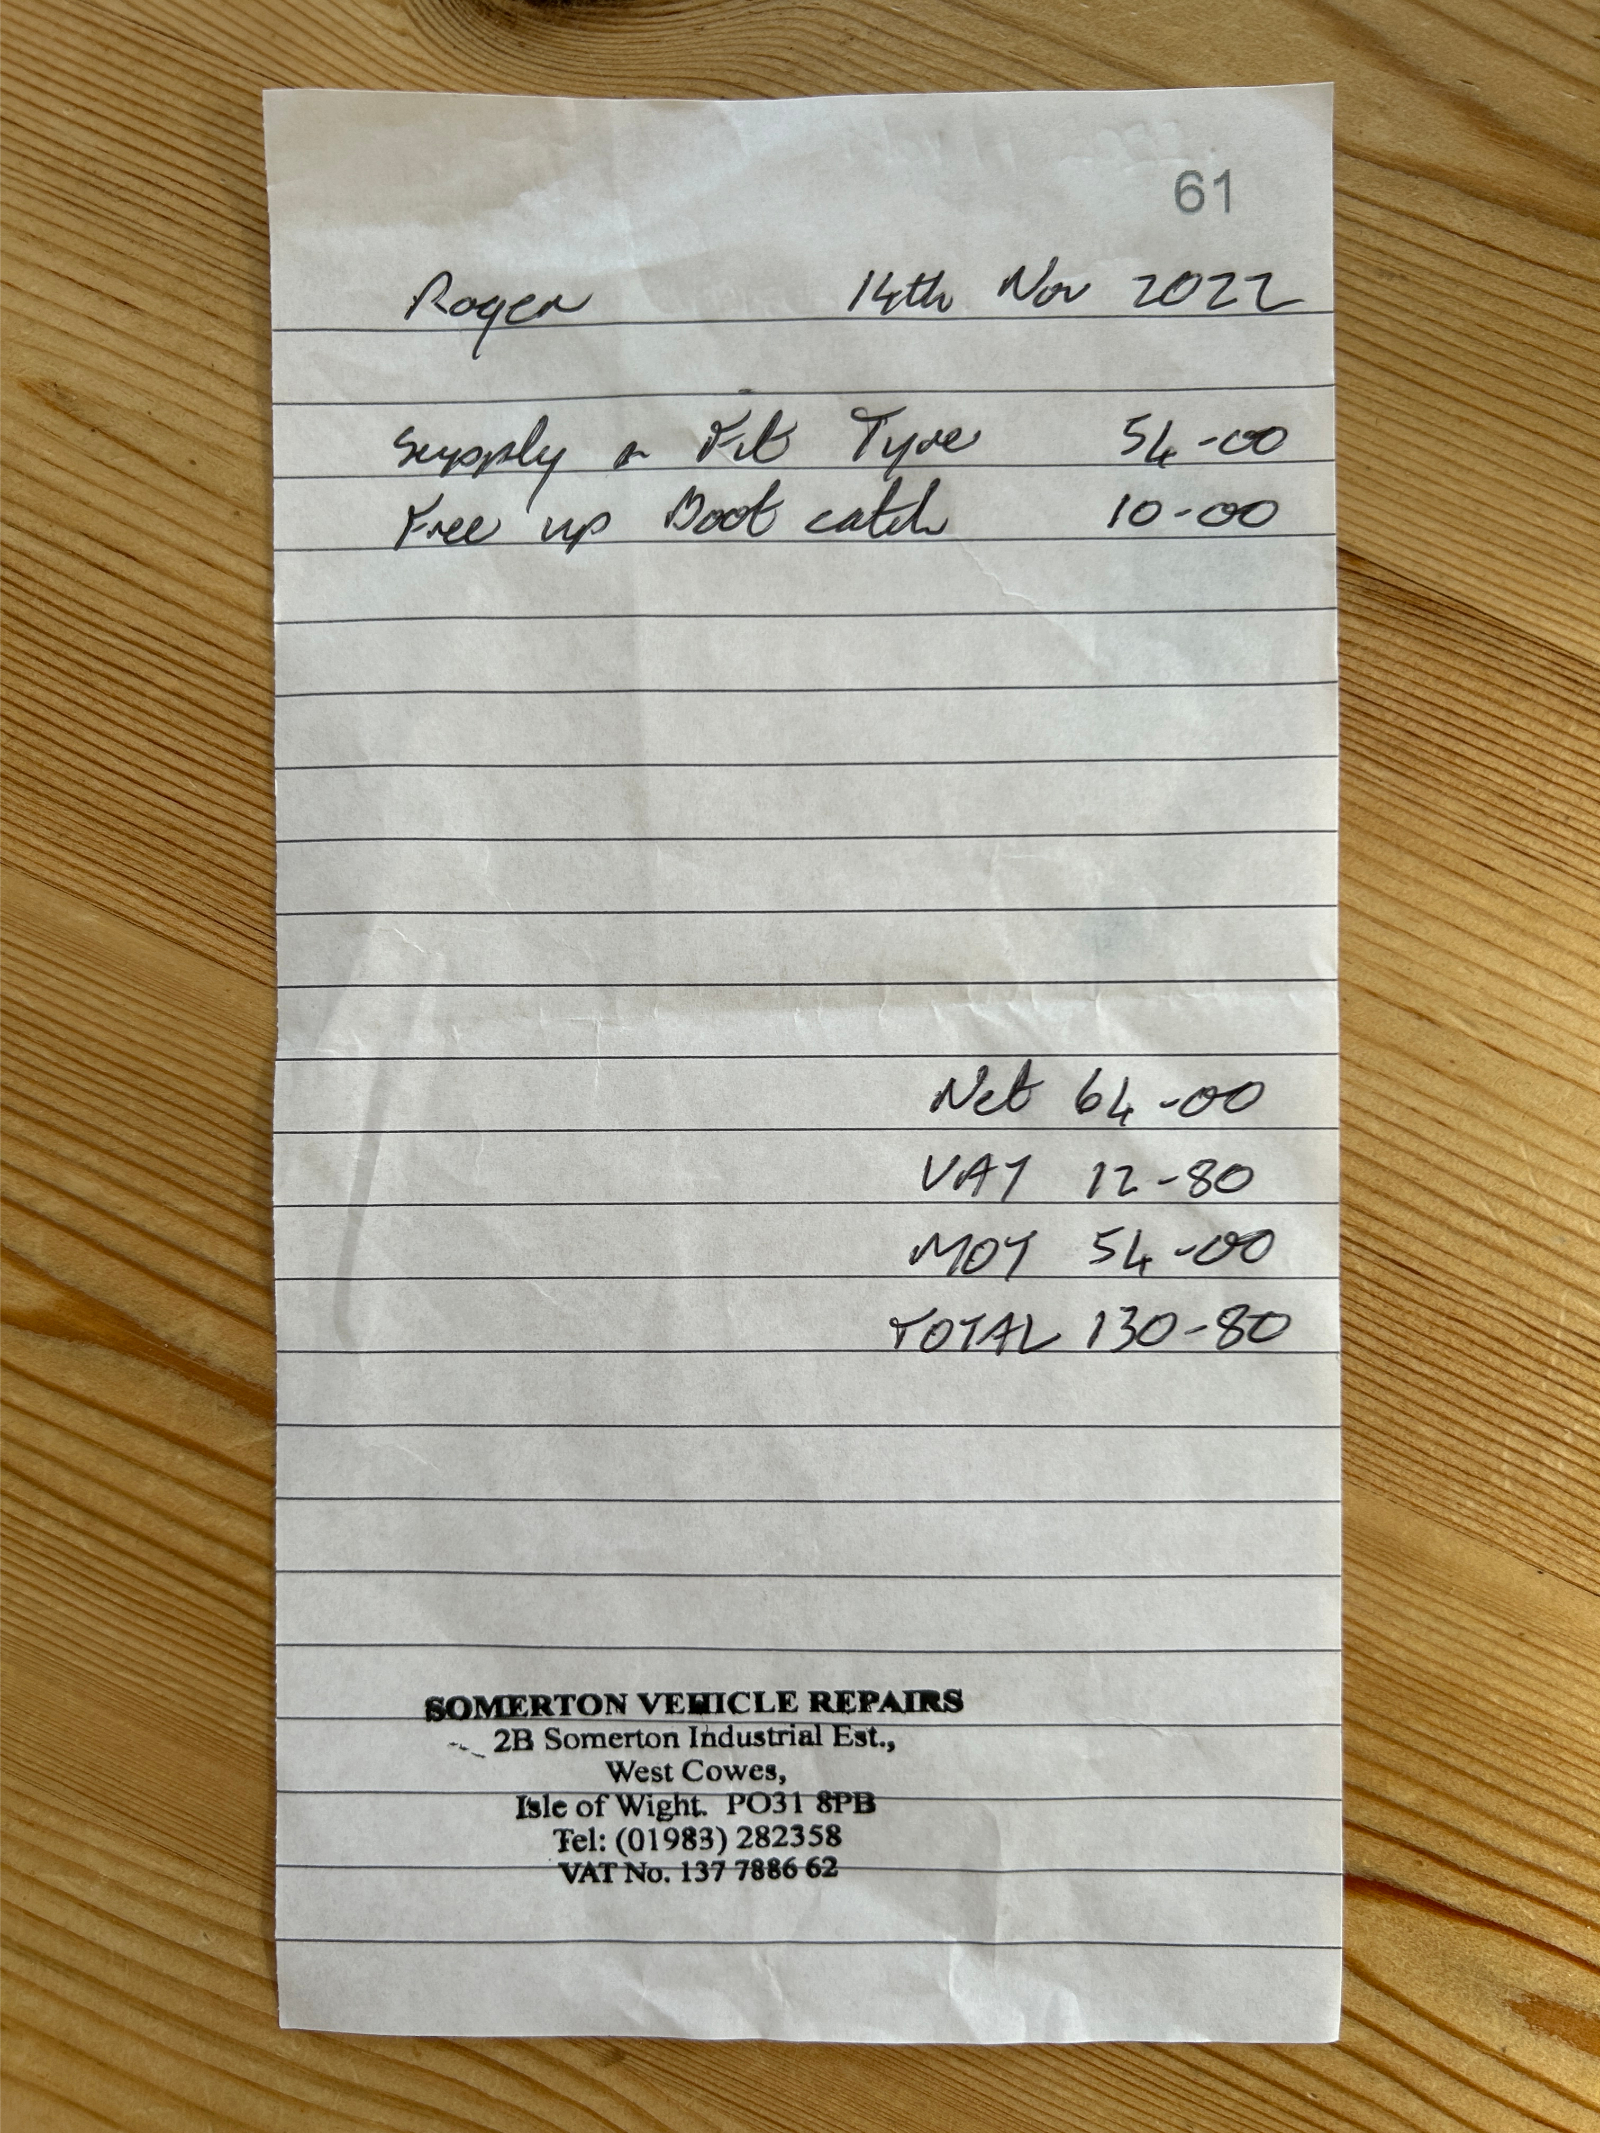 61
Roger 14th Nov 2022
Supply n Fit Tyre 54-00
Free up Boot catch 10-00
Net 64-00
VAT 12-80
MOT 54-00
TOTAL 130-80
SOMERTON VEHICLE REPAIRS
2B Somerton Industrial Est.,
West Cowes,
Isle of Wight. PO31 8PB
Tel: (01983) 282358
VAT No. 137 7886 62